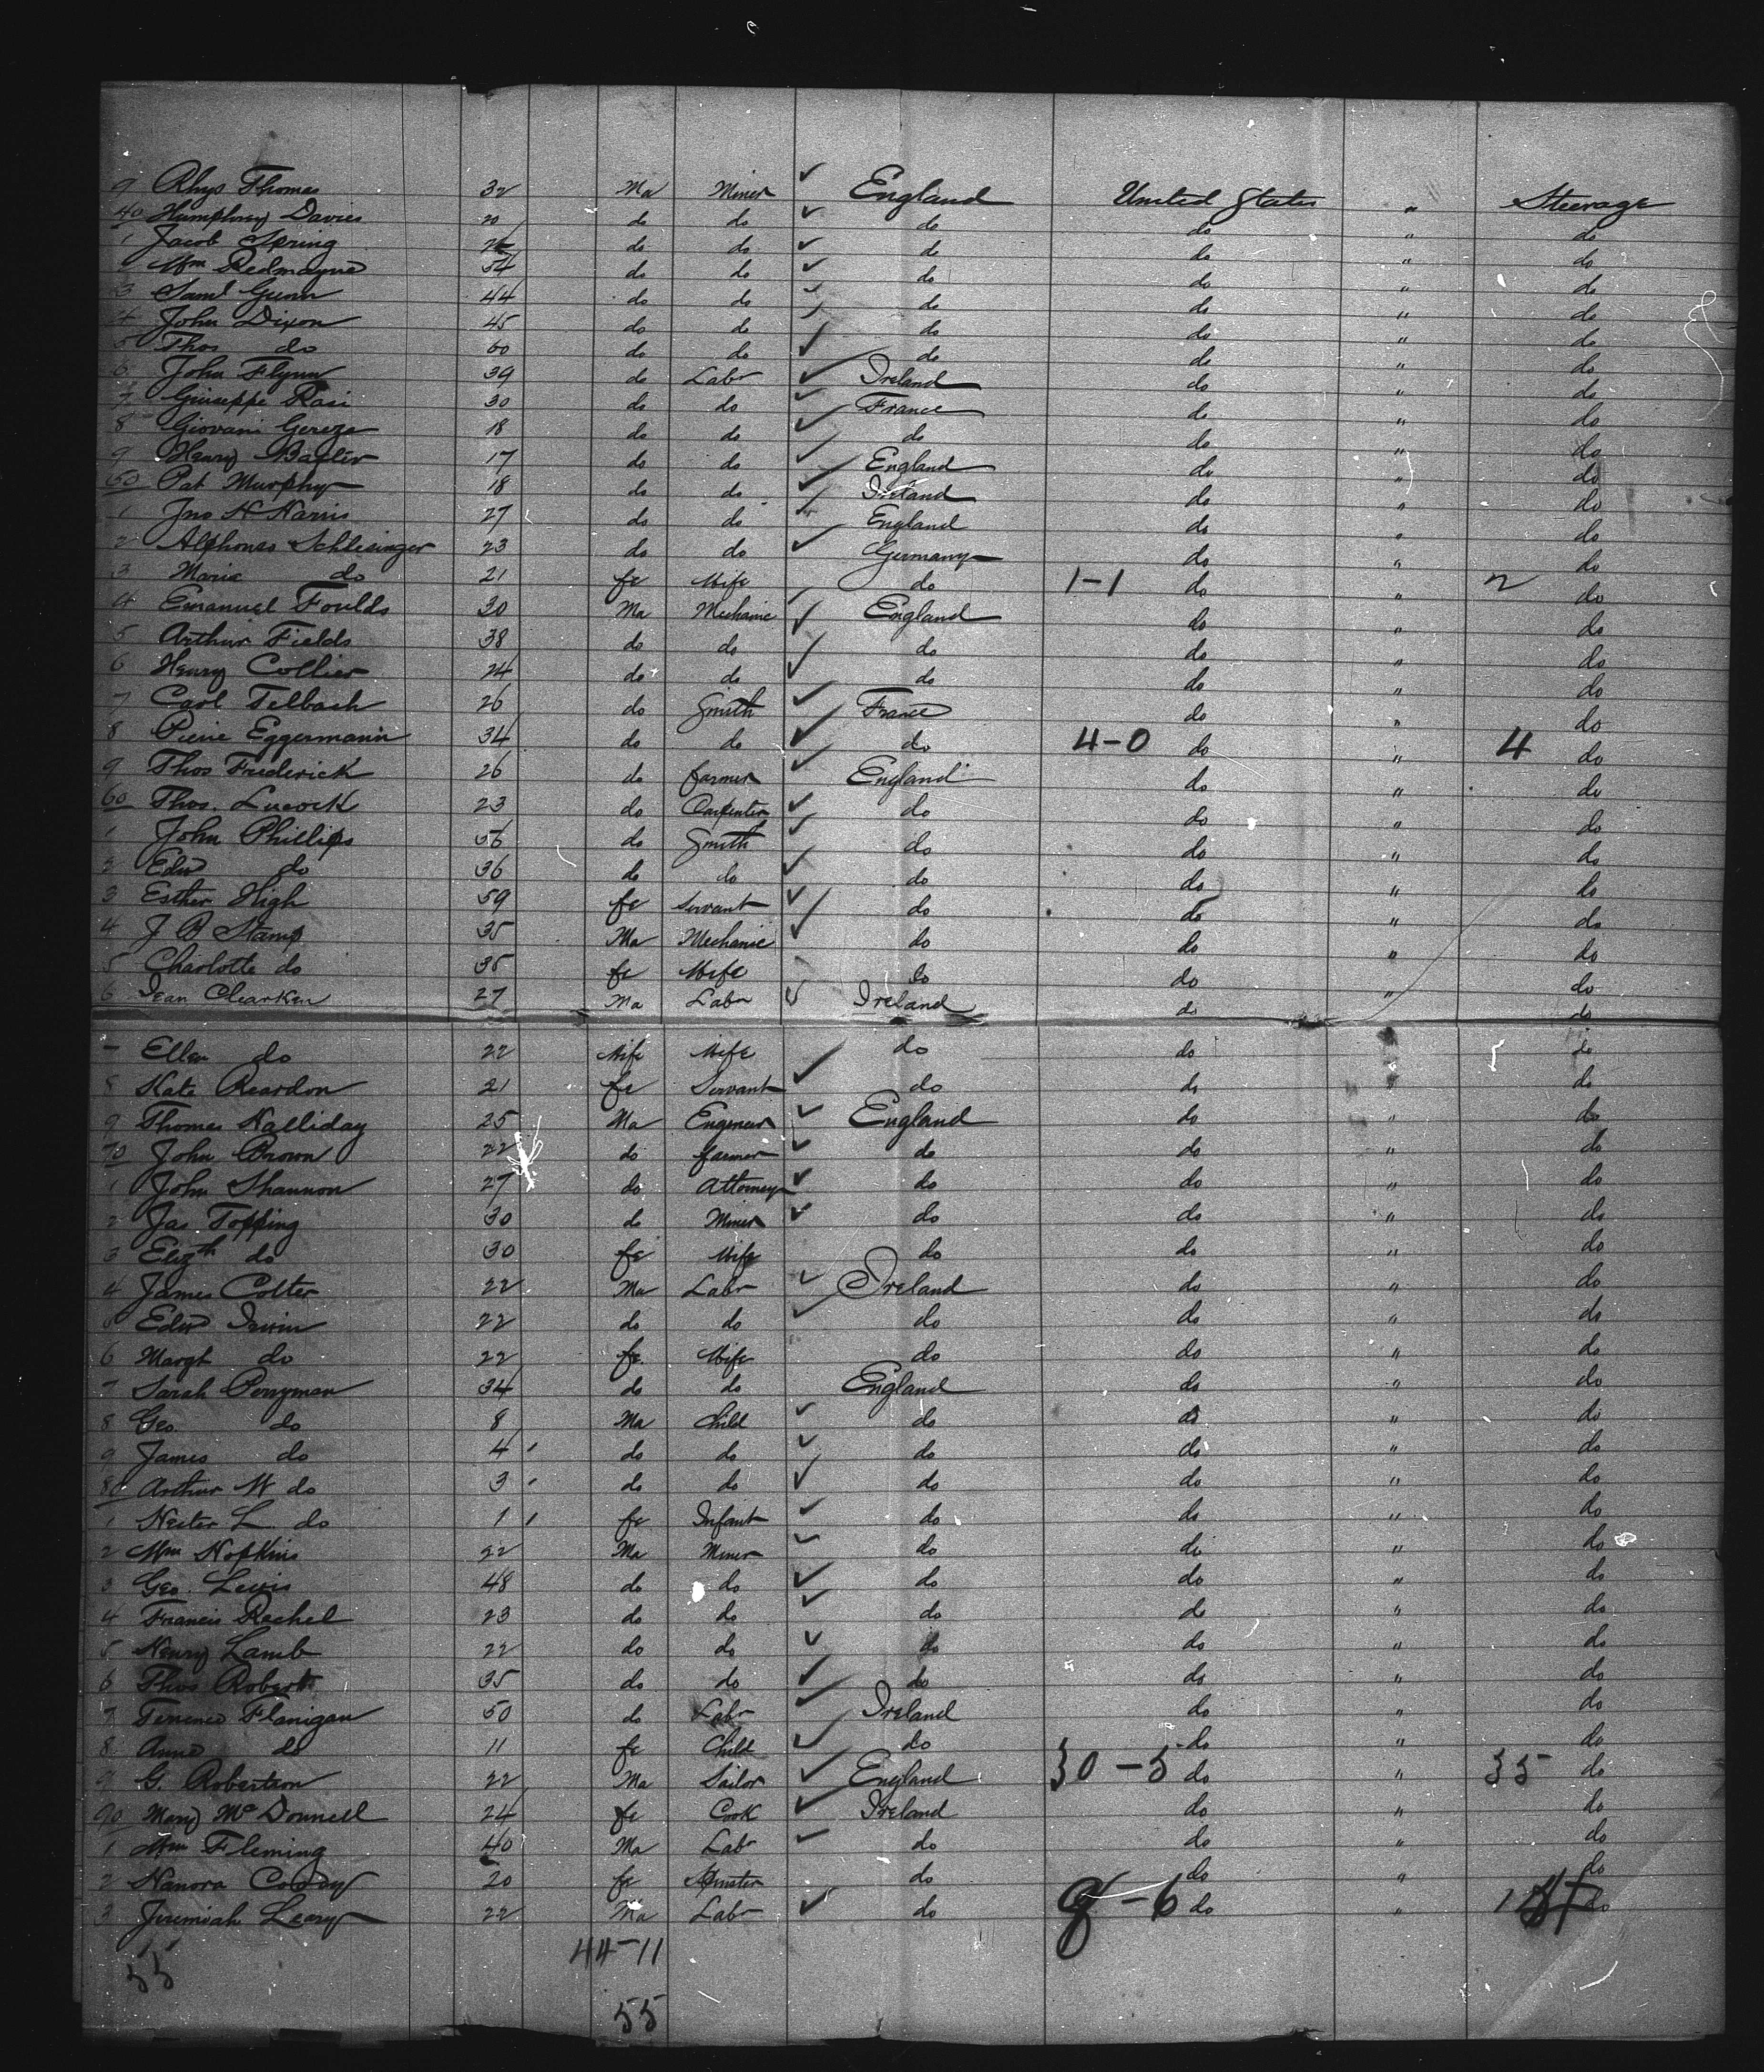 9 Rhys Thomas 32 Ma Miner England United States " Steerage
40 Humphrey Davies 20 do do do do " do
1 Jacob Spring do do do do " do
2 Wm Redmayne 54 do do do do " do
3 Saml Gunn 44 do do do do " do
4 John Dixon 45 do do do do " do
5 Thos do 60 do do do do " do
6 John Flynn 39 do Labr Ireland do " do
7 Giuseppe Rasi 30 do do France do " do
8 Giovani Gereza 18 do do do do " do
9 Henry Baxter 17 do do England do " do
50 Pat Murphy 18 do do Ireland do " do
1 Jno H Harris 27 do do England do " do
2 Alphonso Schlesinger 23 do do Germany do " do
3 Maria do 21 fe Wife do 1-1 do " 2 do
4 Emanuel Foulds 30 Ma Mechanic England do " do
5 Arthur Fields 38 do do do do " do
6 Henry Collier 24 do do do do " do
7 Carl Felbach 26 do Smith France do " do
8 Pierre Eggermann 34 do do do 4-0 do " 4 do
9 Thos Frederick 26 do farmer England do " do
60 Thos. Lucock 23 do Carpenter do do " do
1 John Phillips 56 do Smith do do " do
2 Edw do 36 do do do do " do
3 Esther High 59 fe Servant do do " do
4 J B Stamp 35 Ma Mechanic do do " do
5 Charlotte do 35 fe Wife do do " do
6 Jean Clearken 27 Ma Labr Ireland do do
7 Ellen do 22 Wife Wife do do " do
8 Kate Reardon 21 fe Servant do do " do
9 Thomas Halliday 25 Ma Engineer England do " do
70 John Brown 22 do farmer do do " do
1 John Shannon 27 do Attorney do do " do
2 Jas Topping 30 do Miner do do " do
3 Elizth do 30 fe Wife do do " do
4 James Colter 22 Ma Labr Ireland do " do
5 Edw Irwin 22 do do do do " do
6 Margt do 22 fe Wife do do " do
7 Sarah Perryman 34 do do England do " do
8 Geo do 8 Ma Child do do " do
9 James do 4 do do do do " do
80 Arthur W do 3 do do do do " do
1 Hester L do 1 fe Infant do do " do
2 Wm Hopkins 22 Ma Miner do do " do
3 Geo. Lewis 48 do do do do " do
4 Francis Rechel 23 do do do do " do
5 Henry Lamb 22 do do do do " do
6 Thos Roberts 35 do do do do " do
7 Terence Flanigan 50 do Labr Ireland do " do
8 Anne do 11 fe Child do do " do
9 G. Robertson 22 Ma Sailor England 30-5 do " 35 do
90 Mary McDonnell 24 fe Cook Ireland do " do
1 Wm Fleming 40 Ma Labr do do " do
2 Hanora Coddy 20 fe Spinster do do " do
3 Jeremiah Leary 22 Ma Labr do -6 do " do
55 44-11
55